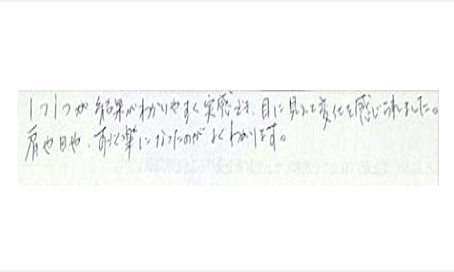 1つ1つが結果がわかりやすく実感でき、目に見えて変化を感じられました。
肩や目や、すごく楽になったのがよくわかります。